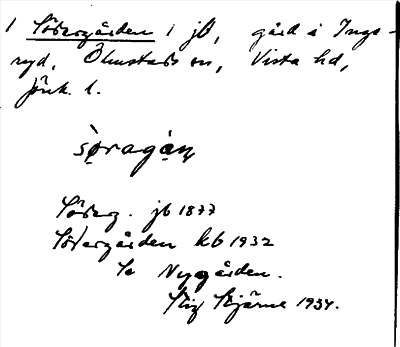 1 Södergården i jb, gård å Ings-
ryd, Ölmstads sn, Vista hd,
Jönk. l.
søragán
Söderg. jb 1877
Södergården kb 1932
Se Nygården.
Stig Bjärne 1934.